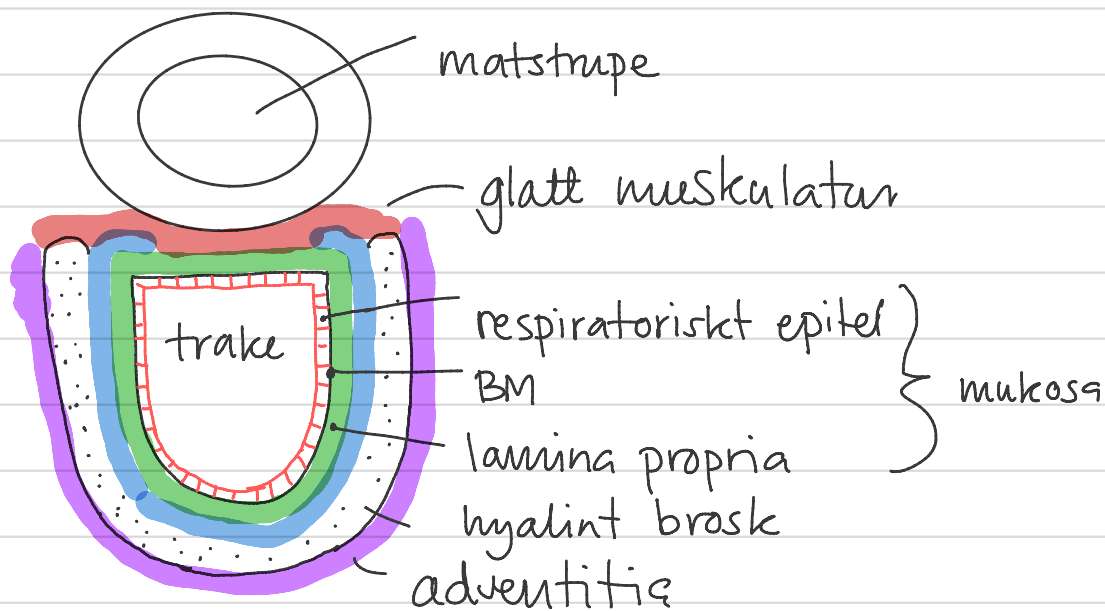 matstrupe
glatt muskulatur
trake
respiratoriskt epitel
BM
mukosa
lamina propria
hyalint brosk
adventitia